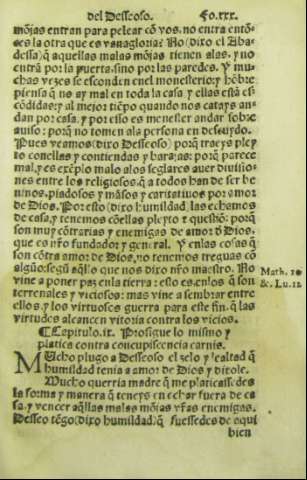 del Desseoso. Fo.xxx.
mõjas entran para pelear cõ vos. no entra entõ-
ces la otra que es vanagloria? No (dixo el Aba-
dessa) q̃ aquellas malas mõjas tienen alas, y no
entrã por la puerta, sino por las paredes. Y mu-
chas vezes se esconden enel monesterio: y hõbre
piensa q̃ no ay mal en toda la casa y ellas está es-
cõdidas: y al mejor tiẽpo quando nos catays an-
dan por casa. y por esso es menester andar sobre
auiso: porq̃ no tomen ala persona en descuydo.
Pues veamos (dixo Desseoso) porq̃ traeys pley-
to conellas y contiendas y barajas: porq̃ parece
mal, y es exẽplo malo alos seglares auer diuisio-
nes entre los religiosos. q̃ a todos han de ser be
ninos, piadosos y mãsos y caritatiuos por amor
de Dios. Por esto (dixo humildad) las echamos
de casa, y tenemos cõellas pleyto e questiõ: porq̃
son muy cõtrarias y enemigas de amor d̃ Dios.
que es nr̃o fundador y general. Y enlas cosas q̃
son cõtra amor de Dios, no tenemos treguas cõ
algũo. segũ aq̃llo que nos dixo nr̃o maestro. No
vine a poner paz enla tierra: esto es. enlos q̃ son
terrenales y viciosos: mas vine a sembrar entre
ellos, y los virtuosos guerra para este fin. q̃ las
virtudes alcancen vitoria contra los vicios.
Math. 10
& Lu. 12.
¶ Capitulo. ix. Prosigue lo mismo y
platica contra concupiscencia carnis.
MUcho plugo a Desseoso el zelo y lealtad q̃
humildad tenia a amor de Dios y dixole.
Mucho querria madre q̃ me platicassedes
la forma y manera q̃ teneys en echar fuera de ca
sa, y vencer aq̃llas malas mõjas vr̃as enemigas.
Desseo tẽgo (dixo humildad) q̃ fuessedes de aqui
bien